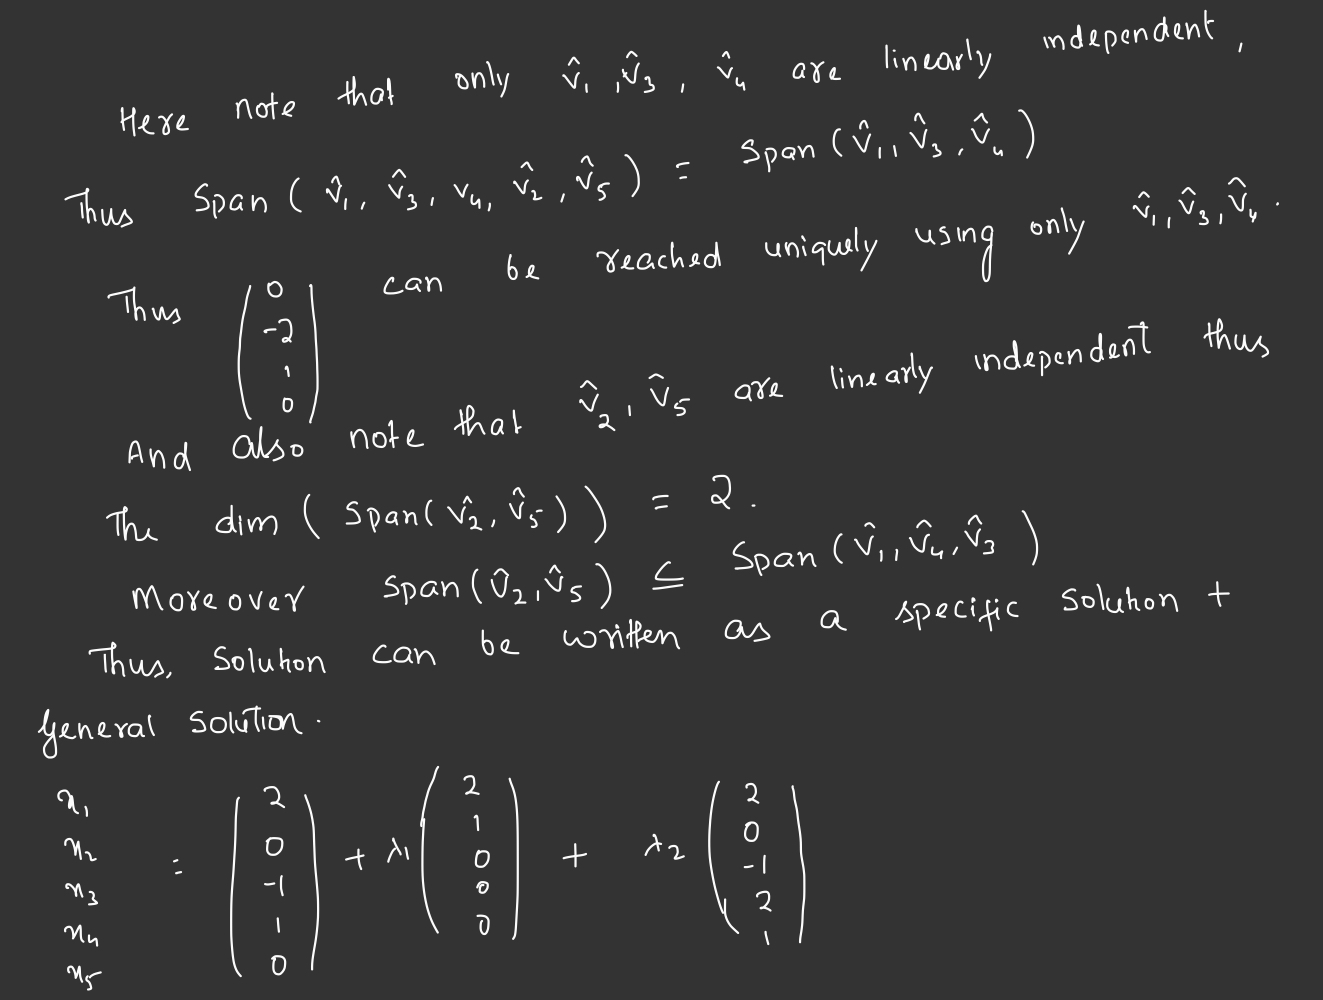 Here note that only v̂₁, v̂₃, v̂₄ are linearly independent,
Thus Span ( v̂₁, v̂₃, v₄, v̂₂, v̂₅ ) = Span ( v̂₁, v̂₃, v̂₄ )
Thus (0 -2 1 0) can be reached uniquely using only v̂₁, v̂₃, v̂₄.
And also note that v̂₂, v̂₅ are linearly independent thus
The dim ( Span( v̂₂, v̂₅ ) ) = 2.
Moreover Span ( v̂₂, v̂₅ ) ⊆ Span ( v̂₁, v̂₄, v̂₃ )
Thus, Solution can be written as a specific solution +
general solution.
x₁ x₂ x₃ x₄ x₅ = (2 0 -1 1 0) + λ₁ (2 1 0 0 0) + λ₂ (2 0 -1 2 1)